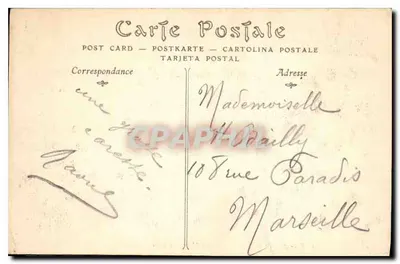 Carte Postale
POST CARD — POSTKARTE — CARTOLINA POSTALE
TARJETA POSTAL
Correspondance
Adresse
une
caresse.
Mademoiselle
Bailly
108 rue Paradis
Marseille